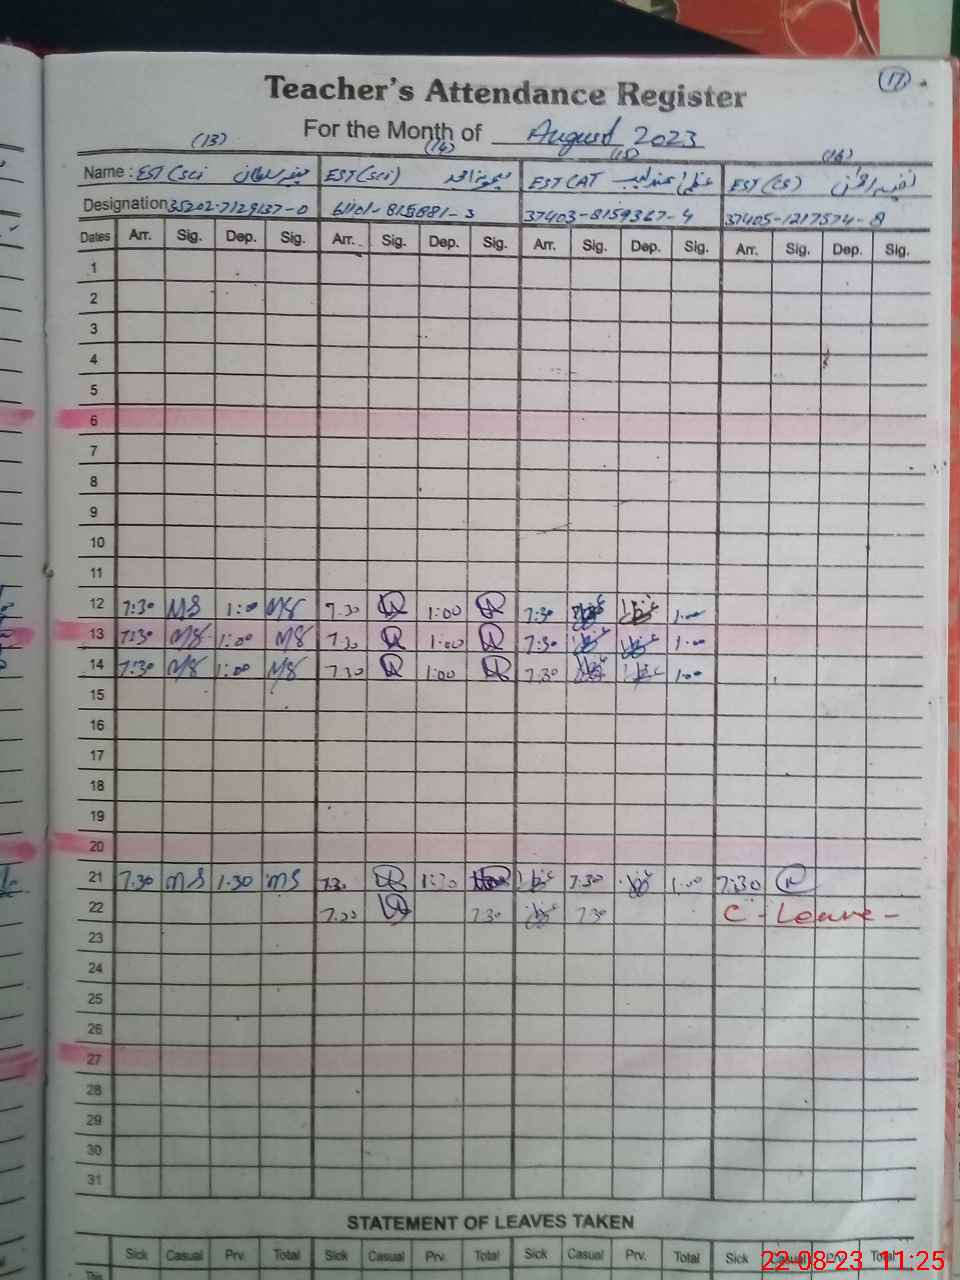 17
Teacher's Attendance Register
For the Month of August 2023
(13) (14) (15) (16)
Name : EST (Sci EST (Sci) EST (AT عندلیب EST (CS)
Designation 35202-7129137-0 37403-8159367-4 37405-1217574-8
Dates Arr. Sig. Dep. Sig. Arr. Sig. Dep. Sig. Arr. Sig. Dep. Sig. Arr. Sig. Dep. Sig.
1
2
3
4
5
6
7
8
9
10
11
12 7:30 MS 1:00 MS 7.30 1:00 7:30 1.00
13 7:30 MS 1:00 MS 7.30 1:00 7:30 1.00
14 7:30 MS 1:00 MS 7.30 1:00 7.30 1.00
15
16
17
18
19
20
21 7.30 MS 1.30 MS 7.30 1:30 7.30 1.00 7:30
22 7.30 7.30 C - Leave -
23
24
25
26
27
28
29
30
31
STATEMENT OF LEAVES TAKEN
Sick Casual Prv. Total Sick Casual Prv. Total Sick Casual Prv. Total Sick Casual Prv. Total
22-08-23 11:25